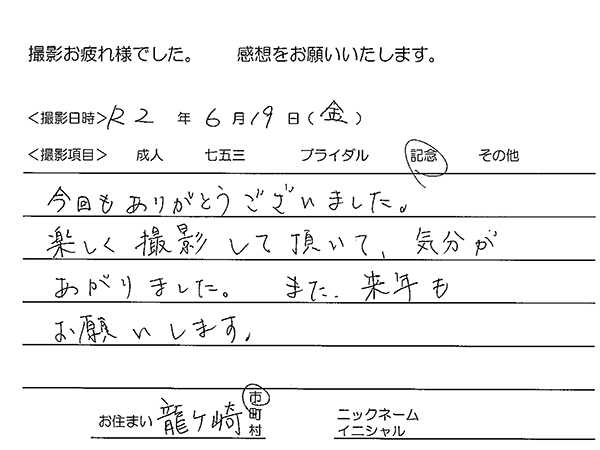 撮影お疲れ様でした。　感想をお願いいたします。
<撮影日時>R2 年 6月19日(金)
<撮影項目>　成人　七五三　ブライダル　記念　その他
今回もありがとうございました。
楽しく撮影して頂いて、気分が
あがりました。　また、来年も
お願いします。
お住まい 龍ケ崎 市町村　ニックネーム イニシャル